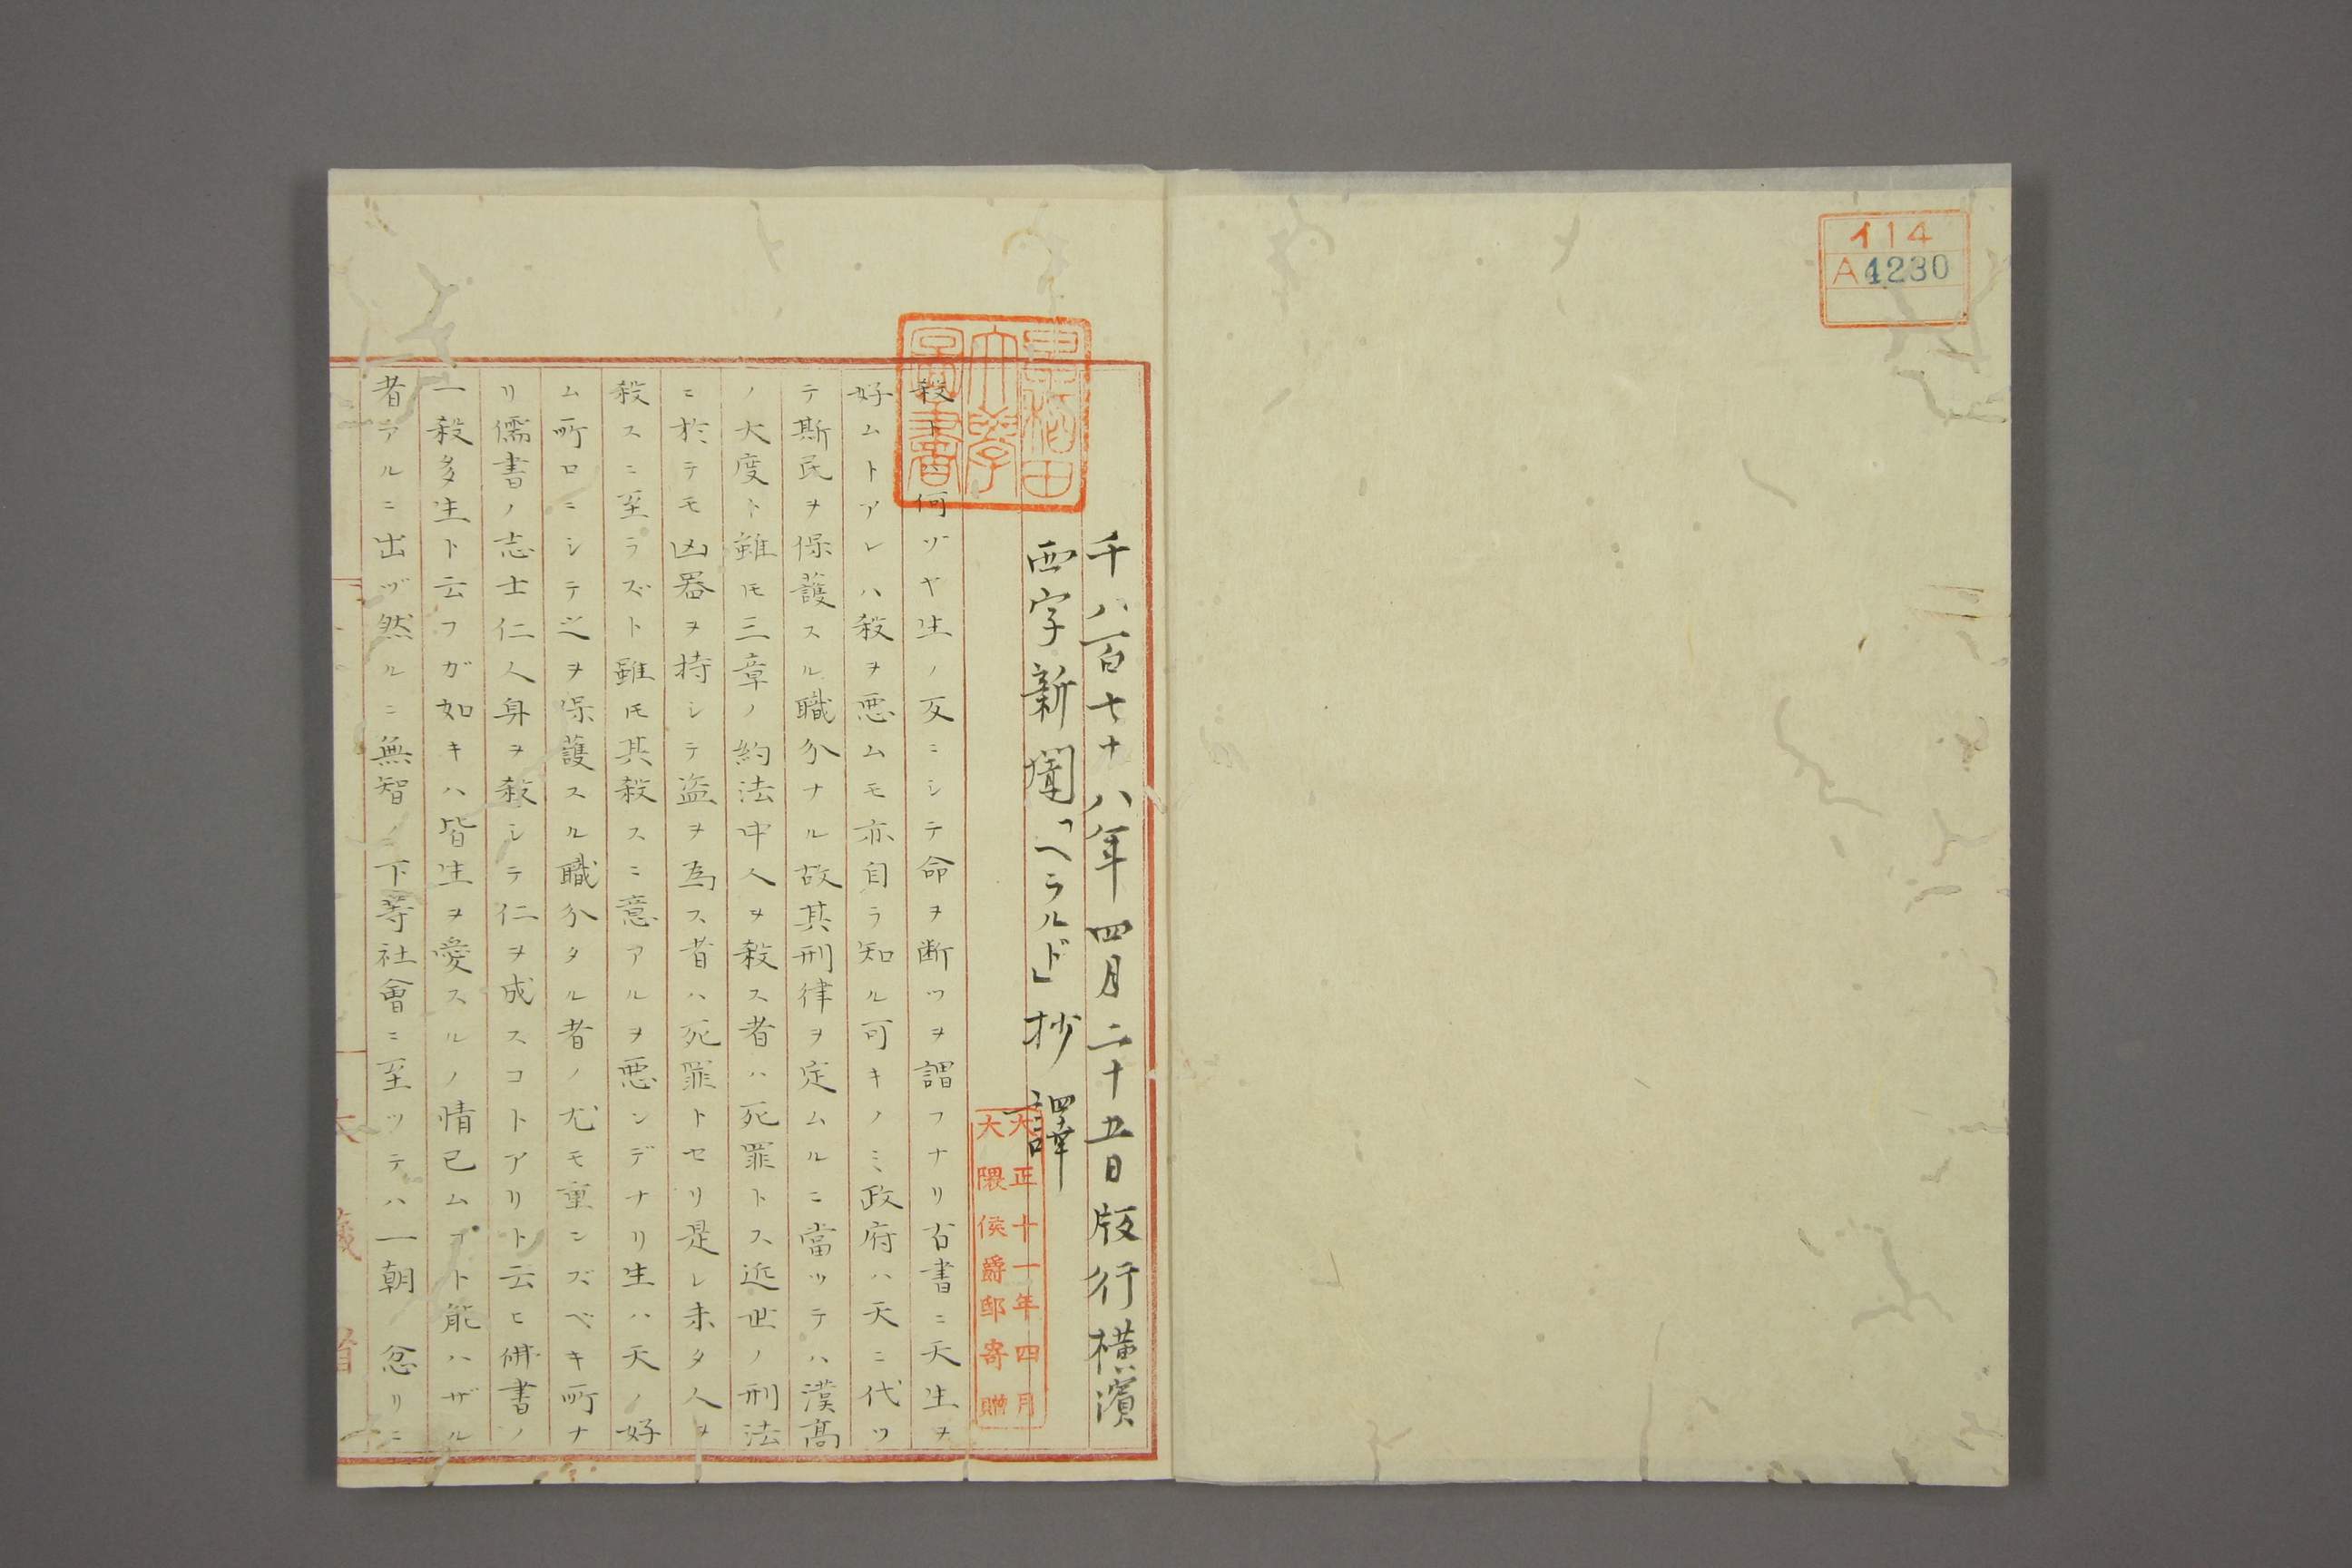 イ14
A4230
早稲田
大學
圖書
千八百七十八年四月二十五日版行横濱
西字新聞「ヘラルド」抄譯
大正十一年四月
大隈侯爵邸寄贈
殺トハ何ゾヤ生ノ反ニシテ命ヲ断ツヲ謂フナリ古書ニ天生ヲ
好ムトアレハ殺ヲ悪ムモ亦自ラ知ル可キノミ政府ハ天ニ代ツ
テ斯民ヲ保護スル職分ナル故其刑律ヲ定ムルニ當ツテハ漢髙
ノ大度ト雖𪜈三章ノ約法中人ヲ殺ス者ハ死罪トス近世ノ刑法
ニ於テモ凶器ヲ持シテ盗ヲ為ス者ハ死罪トセリ是レ未タ人ヲ
殺スニ至ラズト雖𪜈其殺スニ意アルヲ悪ンデナリ生ハ天ノ好
ム所ロニシテ之ヲ保護スル職分タル者ノ尤モ重ンズベキ所ナ
リ儒書ノ志士仁人身ヲ殺シテ仁ヲ成スコトアリト云ヒ佛書ノ
一殺多生ト云フガ如キハ皆生ヲ愛スルノ情已ムコト能ハザル
者アルニ出ヅ然ルニ無智ノ下等社會ニ至ツテハ一朝ノ忿リニ